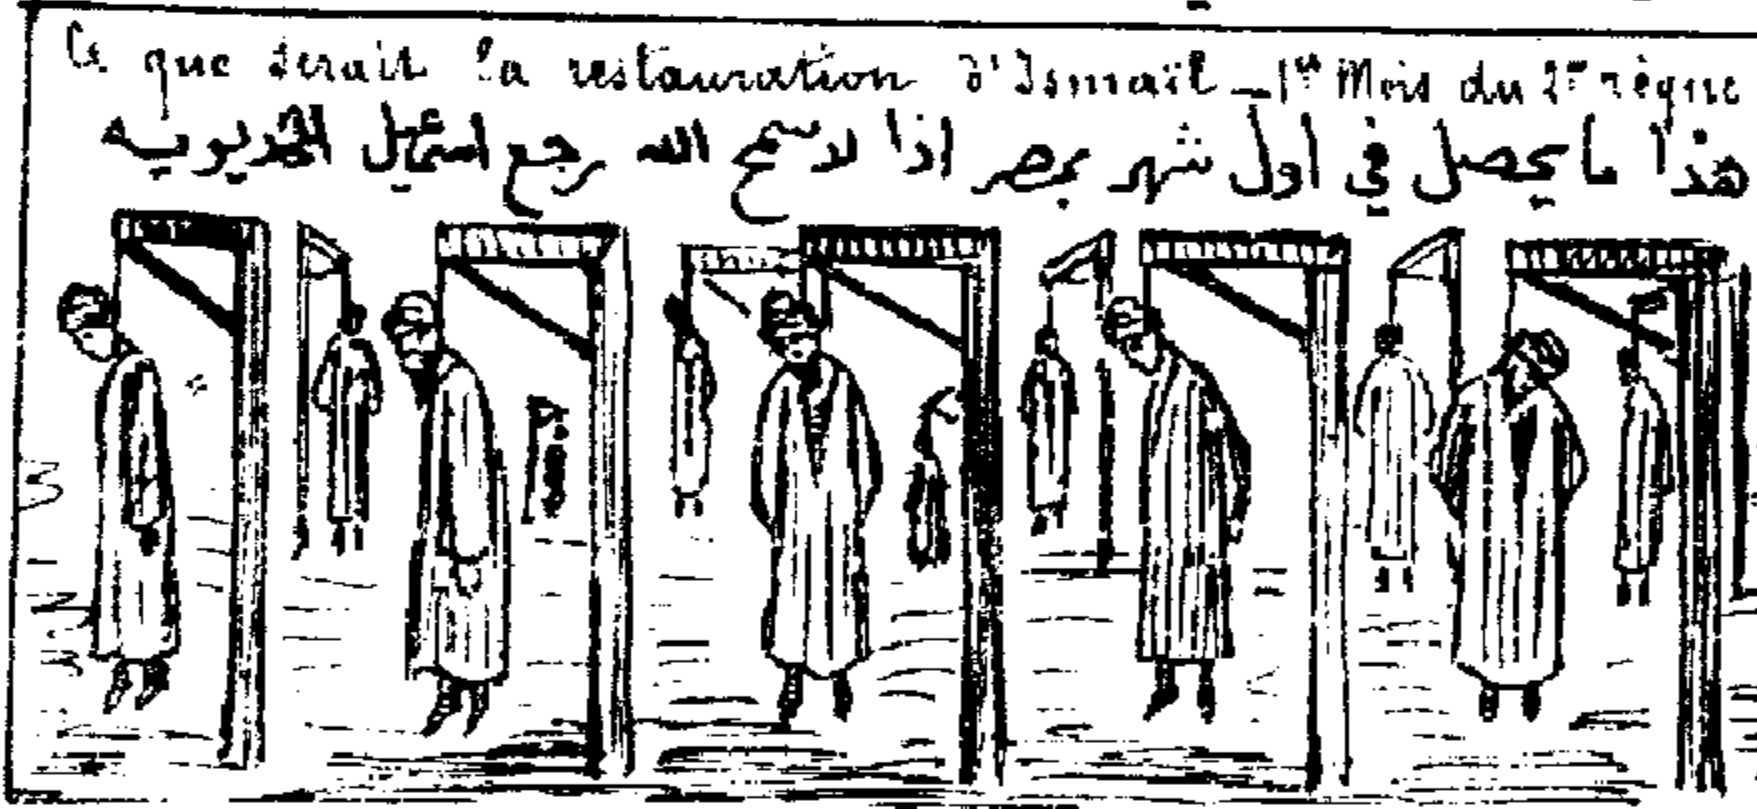 Ce que serait la restauration d'Ismaïl _ 1er Mois du 2me règne
هذا ما يحصل في اول شهر بمصر اذا لا سمح الله رجع اسمعيل الخديويه